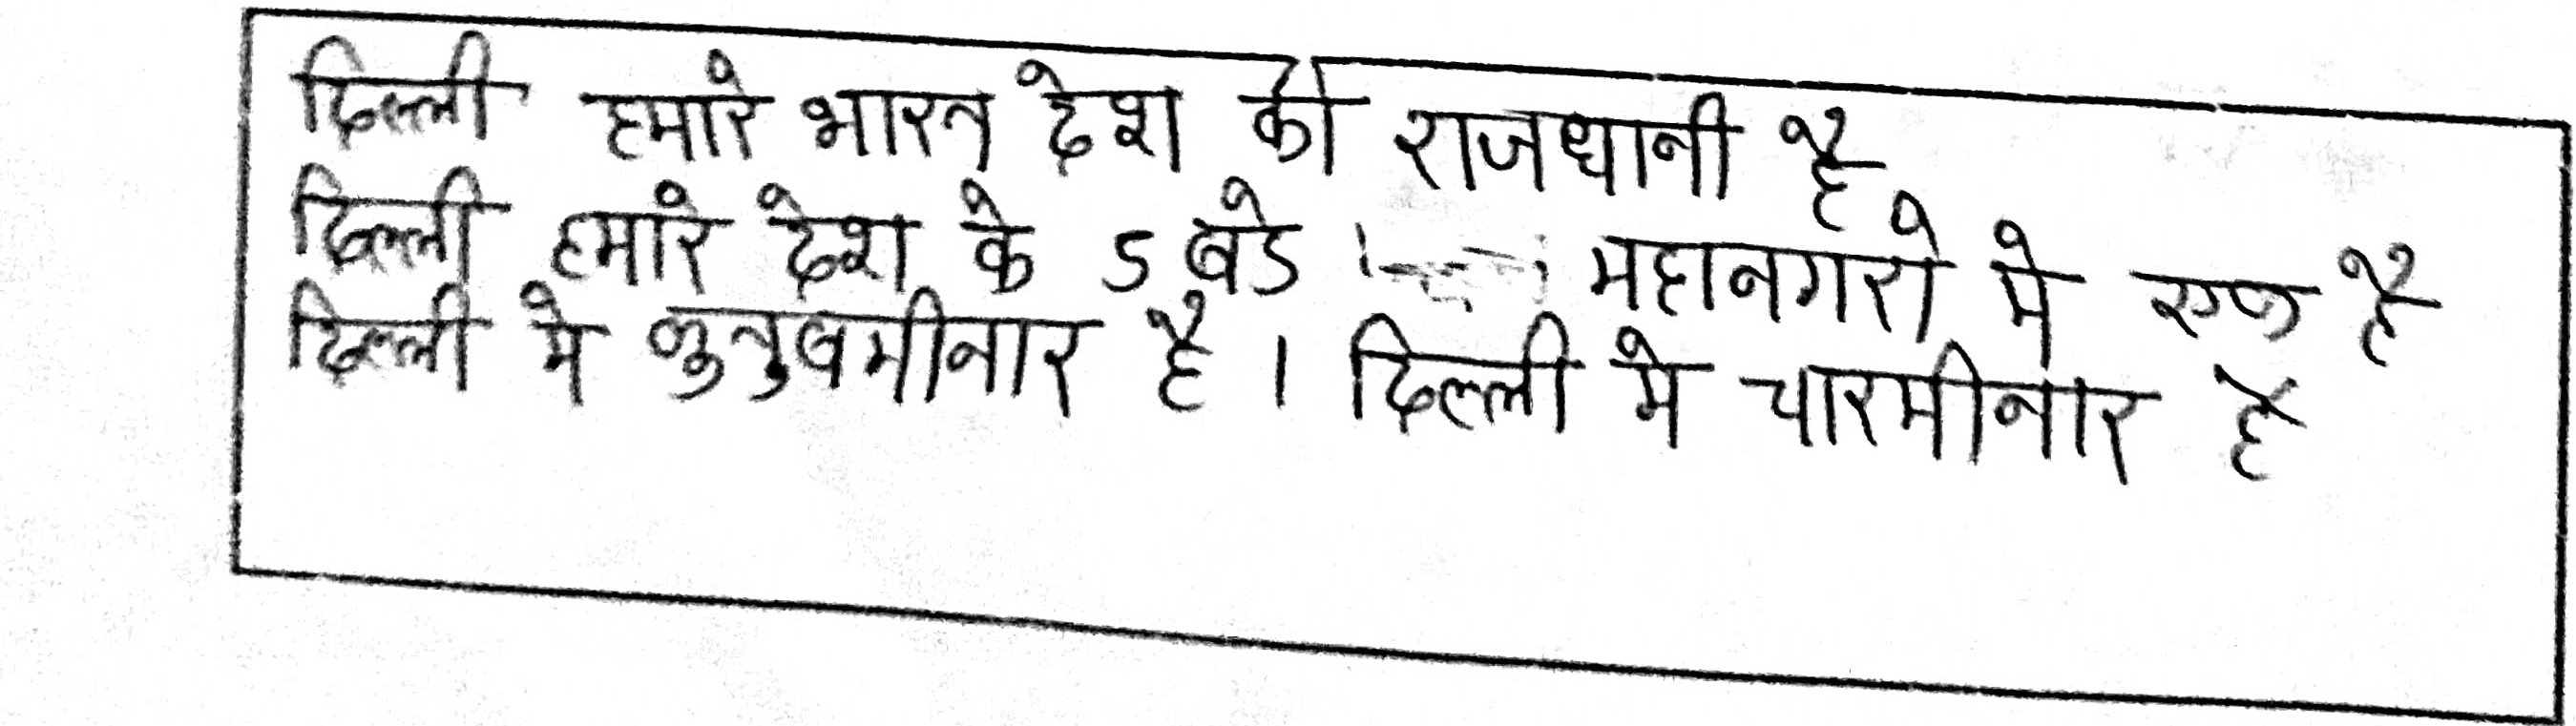 दिल्ली हमारे भारत देश की राजधानी है
दिल्ली हमारे देश के 5 बडे महानगरो मे एक है
दिल्ली मे कुतुबमीनार है । दिल्ली मे चारमीनार है